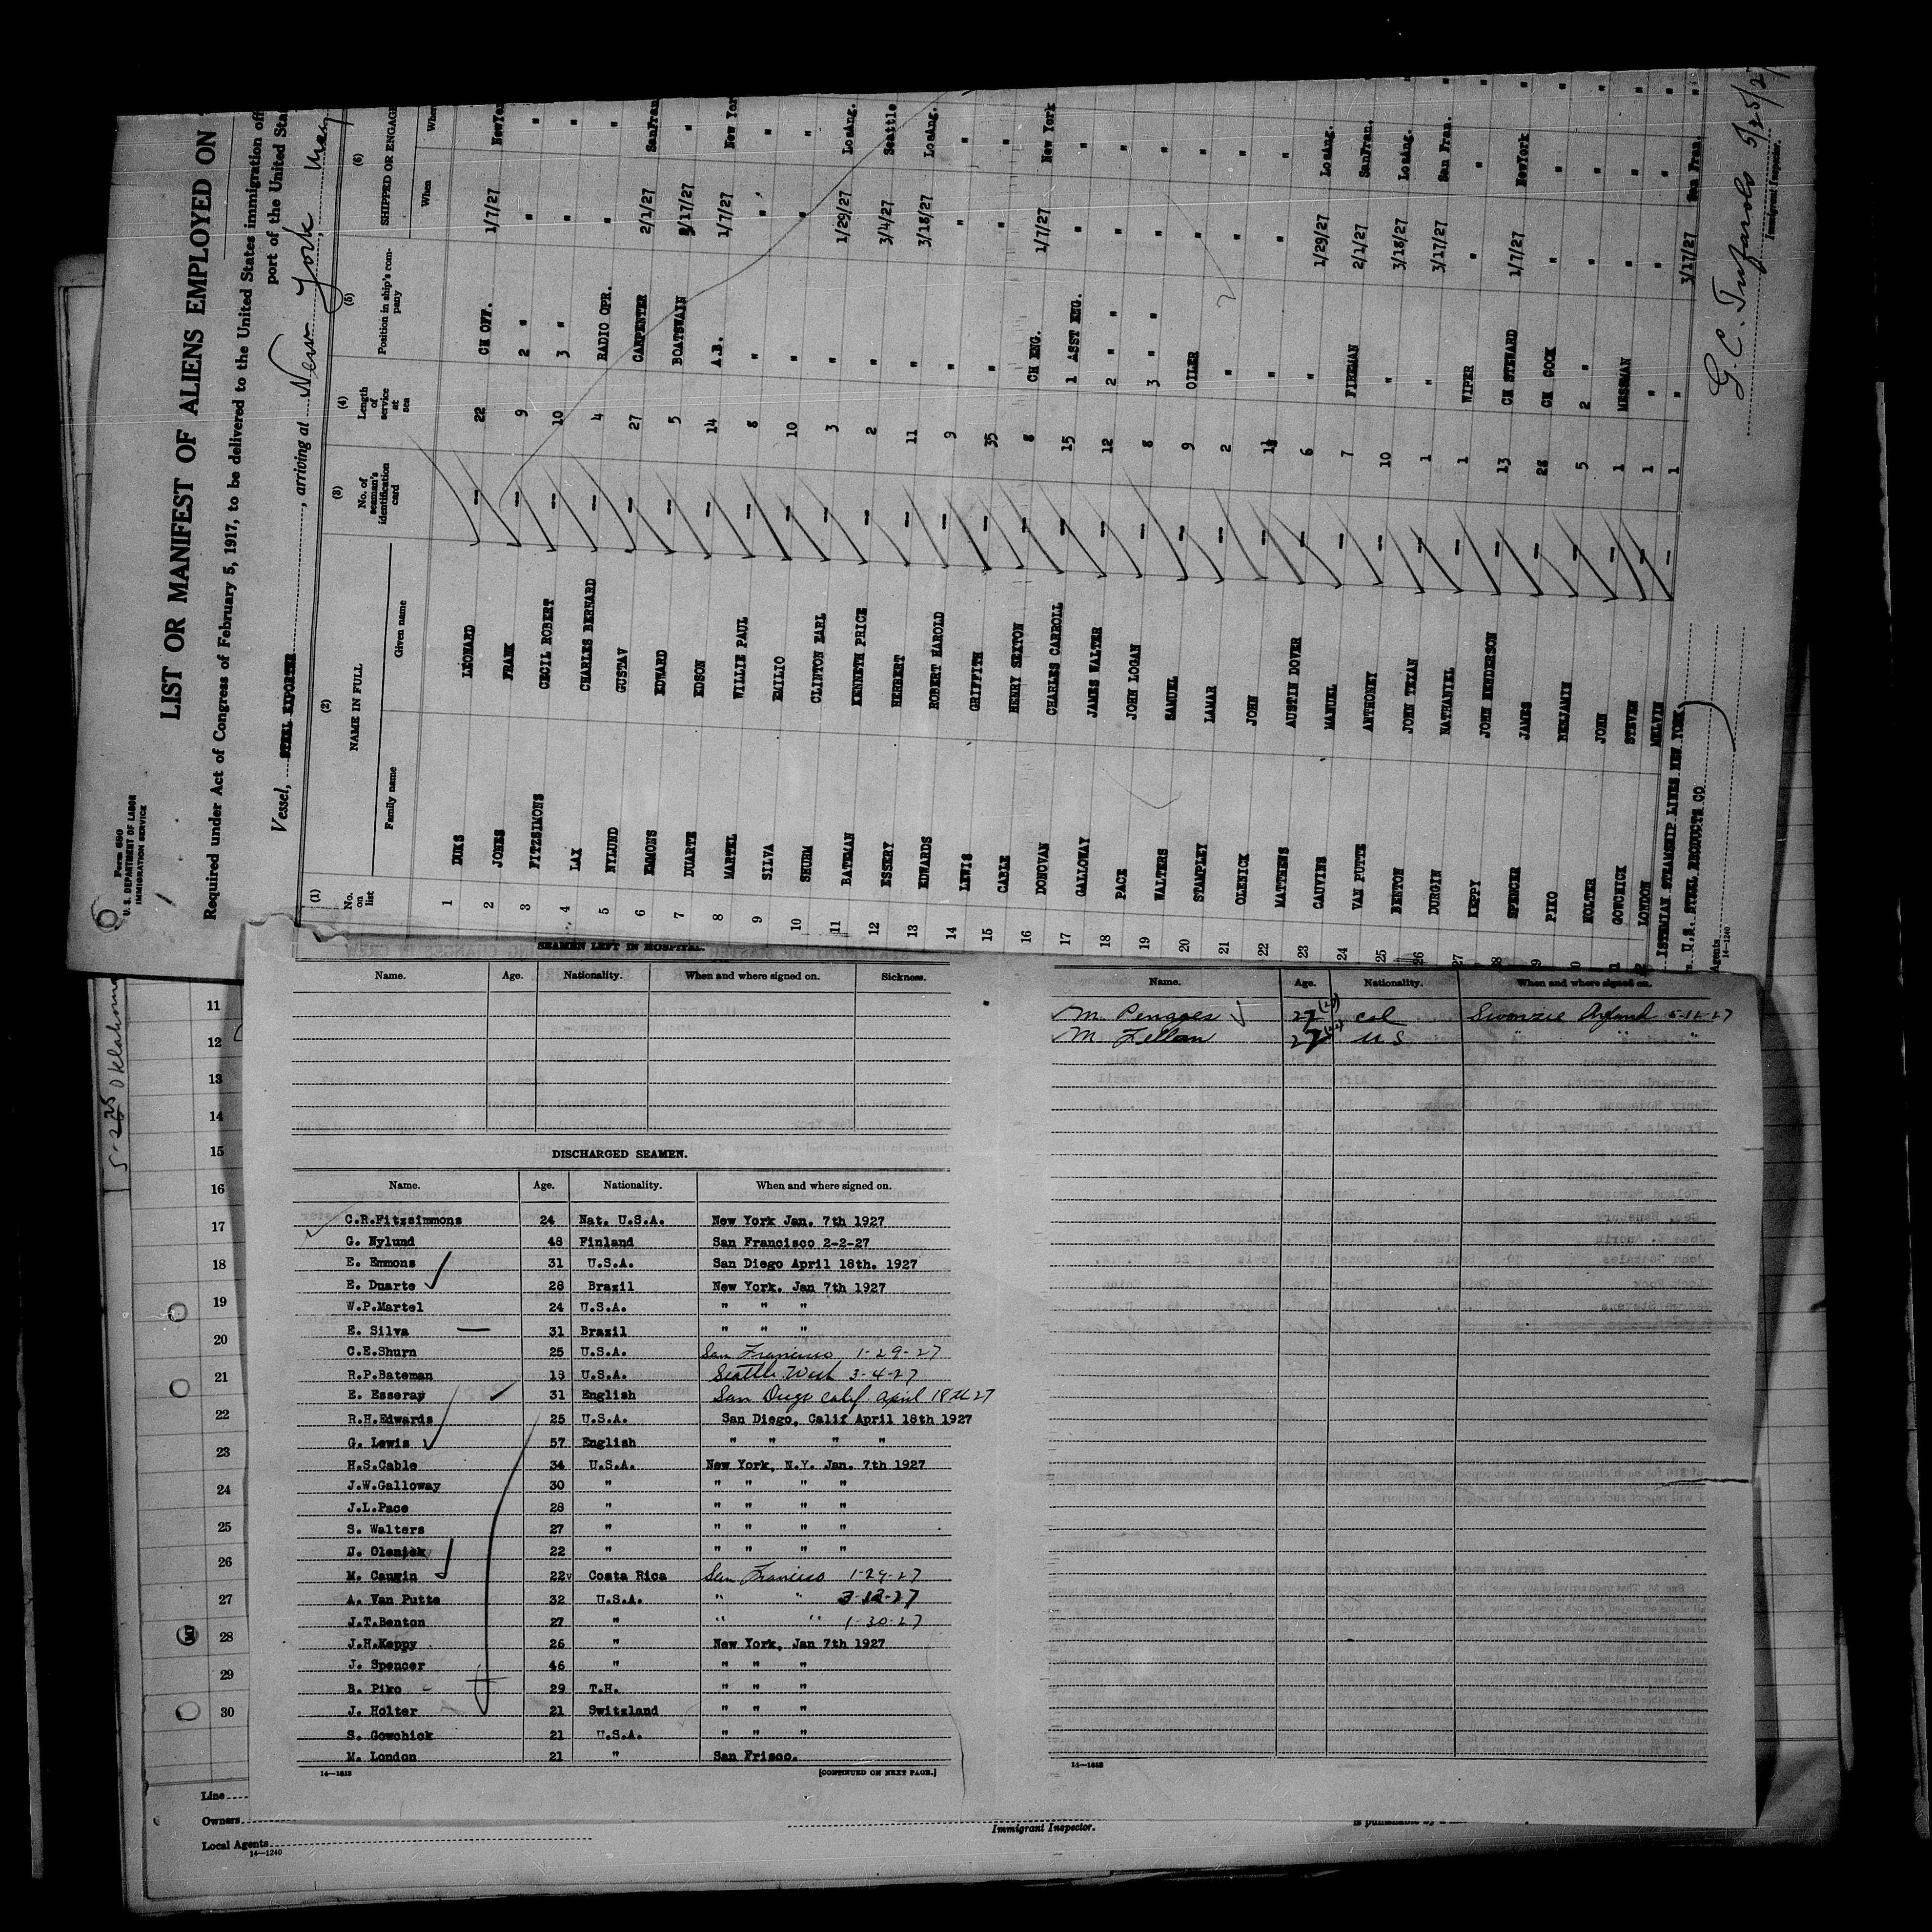 6
Form 680
U. S. DEPARTMENT OF LABOR
IMMIGRATION SERVICE
LIST OR MANIFEST OF ALIENS EMPLOYED ON
Required under Act of Congress of February 5, 1917, to be delivered to the United States immigration off
port of the United Sta
Vessel, STEEL EXPORTER, arriving at New York, May
(1) (2) (3) (4) (5) (6)
No. on list NAME IN FULL No. of seaman's identification card Length of service at sea Position in ship's company SHIPPED OR ENGAGE
Family name Given name When Wher
1 DUKS LEONARD — 22 CH OFF. 1/7/27 NewYor
2 JONES FRANK — 9 2 " " "
3 FITZSIMONS CECIL ROBERT — 10 3 " " "
4 LAX CHARLES BERNARD — 4 RADIO OPR. " "
5 NYLUND GUSTAV — 27 CARPENTER 2/1/27 SanFran
6 EMMONS EDWARD — 5 BOATSWAIN 2/17/27 "
7 DUARTE EDSON — 14 A.B. 1/7/27 New Yor
8 MARTEL WILLIE PAUL — 8 " " "
9 SILVA EMILIO — 10 " " "
10 SHURM CLINTON EARL — 3 " 1/29/27 LosAng.
11 BATEMAN KENNETH PRICE — 2 " 3/4/27 Seattle
12 ESSERY HERBERT — 11 " 3/18/27 LosAng.
13 EDWARDS ROBERT HAROLD — 9 " " "
14 LEWIS GRIFFITH — 35 " " "
15 CABLE HENRY SEXTON — 8 CH ENG. 1/7/27 New York
16 DONOVAN CHARLES CARROLL — 15 1 ASST ENG. " "
17 GALLOWAY JAMES WALTER — 12 2 " " " "
18 PACE JOHN LOGAN — 8 3 " " " "
19 WALTERS SAMUEL — 9 OILER " "
20 STAMPLEY LAMAR — 2 " " "
21 OLENICK JOHN — " " "
22 MATTHENS AUSTIN DOVER — 6 " " "
23 CAUVINS MANUEL — 7 FIREMAN 1/29/27 LosAng.
24 VAN PUTTE ANTHONEY — 10 " 2/1/27 SanFran.
25 BENTON JOHN TEXAN — 1 " 3/18/27 LosAng.
26 DURGIN NATHANIEL — 1 WIPER 3/17/27 San Fran.
27 KEPPY JOHN HENDERSON — 13 CH STEWARD " "
28 SPENCER JAMES — 28 CH COOK 1/7/27 NewYork
9 PIKO BENJAMIN — 5 2 " " "
0 HOLTER JOHN — 1 MESSMAN " "
1 GOWCHICK STEVEN — 1 " " "
2 LONDON MELVIN — 1 " 3/17/27 San Fran.
ISTHMIAN STEAMSHIP LINES NEW YORK
U.S. STEEL PRODUCTS CO
Agents
14—1240
5/25/27
Immigrant Inspector.
SEAMEN LEFT IN HOSPITAL.
Name. Age. Nationality. When and where signed on. Sickness.
DISCHARGED SEAMEN.
Name. Age. Nationality. When and where signed on.
C.R.Fitzsimmons 24 Nat. U.S.A. New York Jan. 7th 1927
G. Nylund 48 Finland San Francisco 2-2-27
E. Emmons 31 U.S.A. San Diego April 18th. 1927
E. Duarte 28 Brazil New York. Jan 7th 1927
W.P.Martel 24 U.S.A. " " "
E. Silva 31 Brazil " " "
C.E.Shurn 25 U.S.A. San Francisco 1-29-27
R.P.Bateman 18 U.S.A. Seattle Wash 3-4-27
E. Esseray 31 English San Diego Calif April 18th 27
R.H.Edwards 25 U.S.A. San Diego, Calif April 18th 1927
G. Lewis 57 English " " " "
H.S.Cable 34 U.S.A. New York, N.Y. Jan. 7th 1927
J.W.Galloway 30 " " " " "
J.L.Pace 28 " " " " "
S. Walters 27 " " " " "
Olenick 22 " " " " "
M. Caugin 22 Costa Rica San Francisco 1-29-27
A. Van Putte 32 U.S.A. " "
J.T.Benton 27 " " " 1-30-27
J.H.Keppy 26 " New York, Jan 7th 1927
J. Spencer 46 " " " "
B. Piko 29 T.H. " " "
J. Holter 21 Switzland " " "
S. Gowchick 21 U.S.A. " " "
M. London 21 " San Frisco.
14—1613
[CONTINUED ON NEXT PAGE.]
Name. Age. Nationality. When and where signed on.
M. 27 Col 5-12-27
M. 27 U S " "
14—1613
5-25 Oklahoma
11
12
13
14
15
16
17
18
19
20
21
22
23
24
25
26
27
28
29
30
Line
Owners
Local Agents
14—1240
Immigrant Inspector.